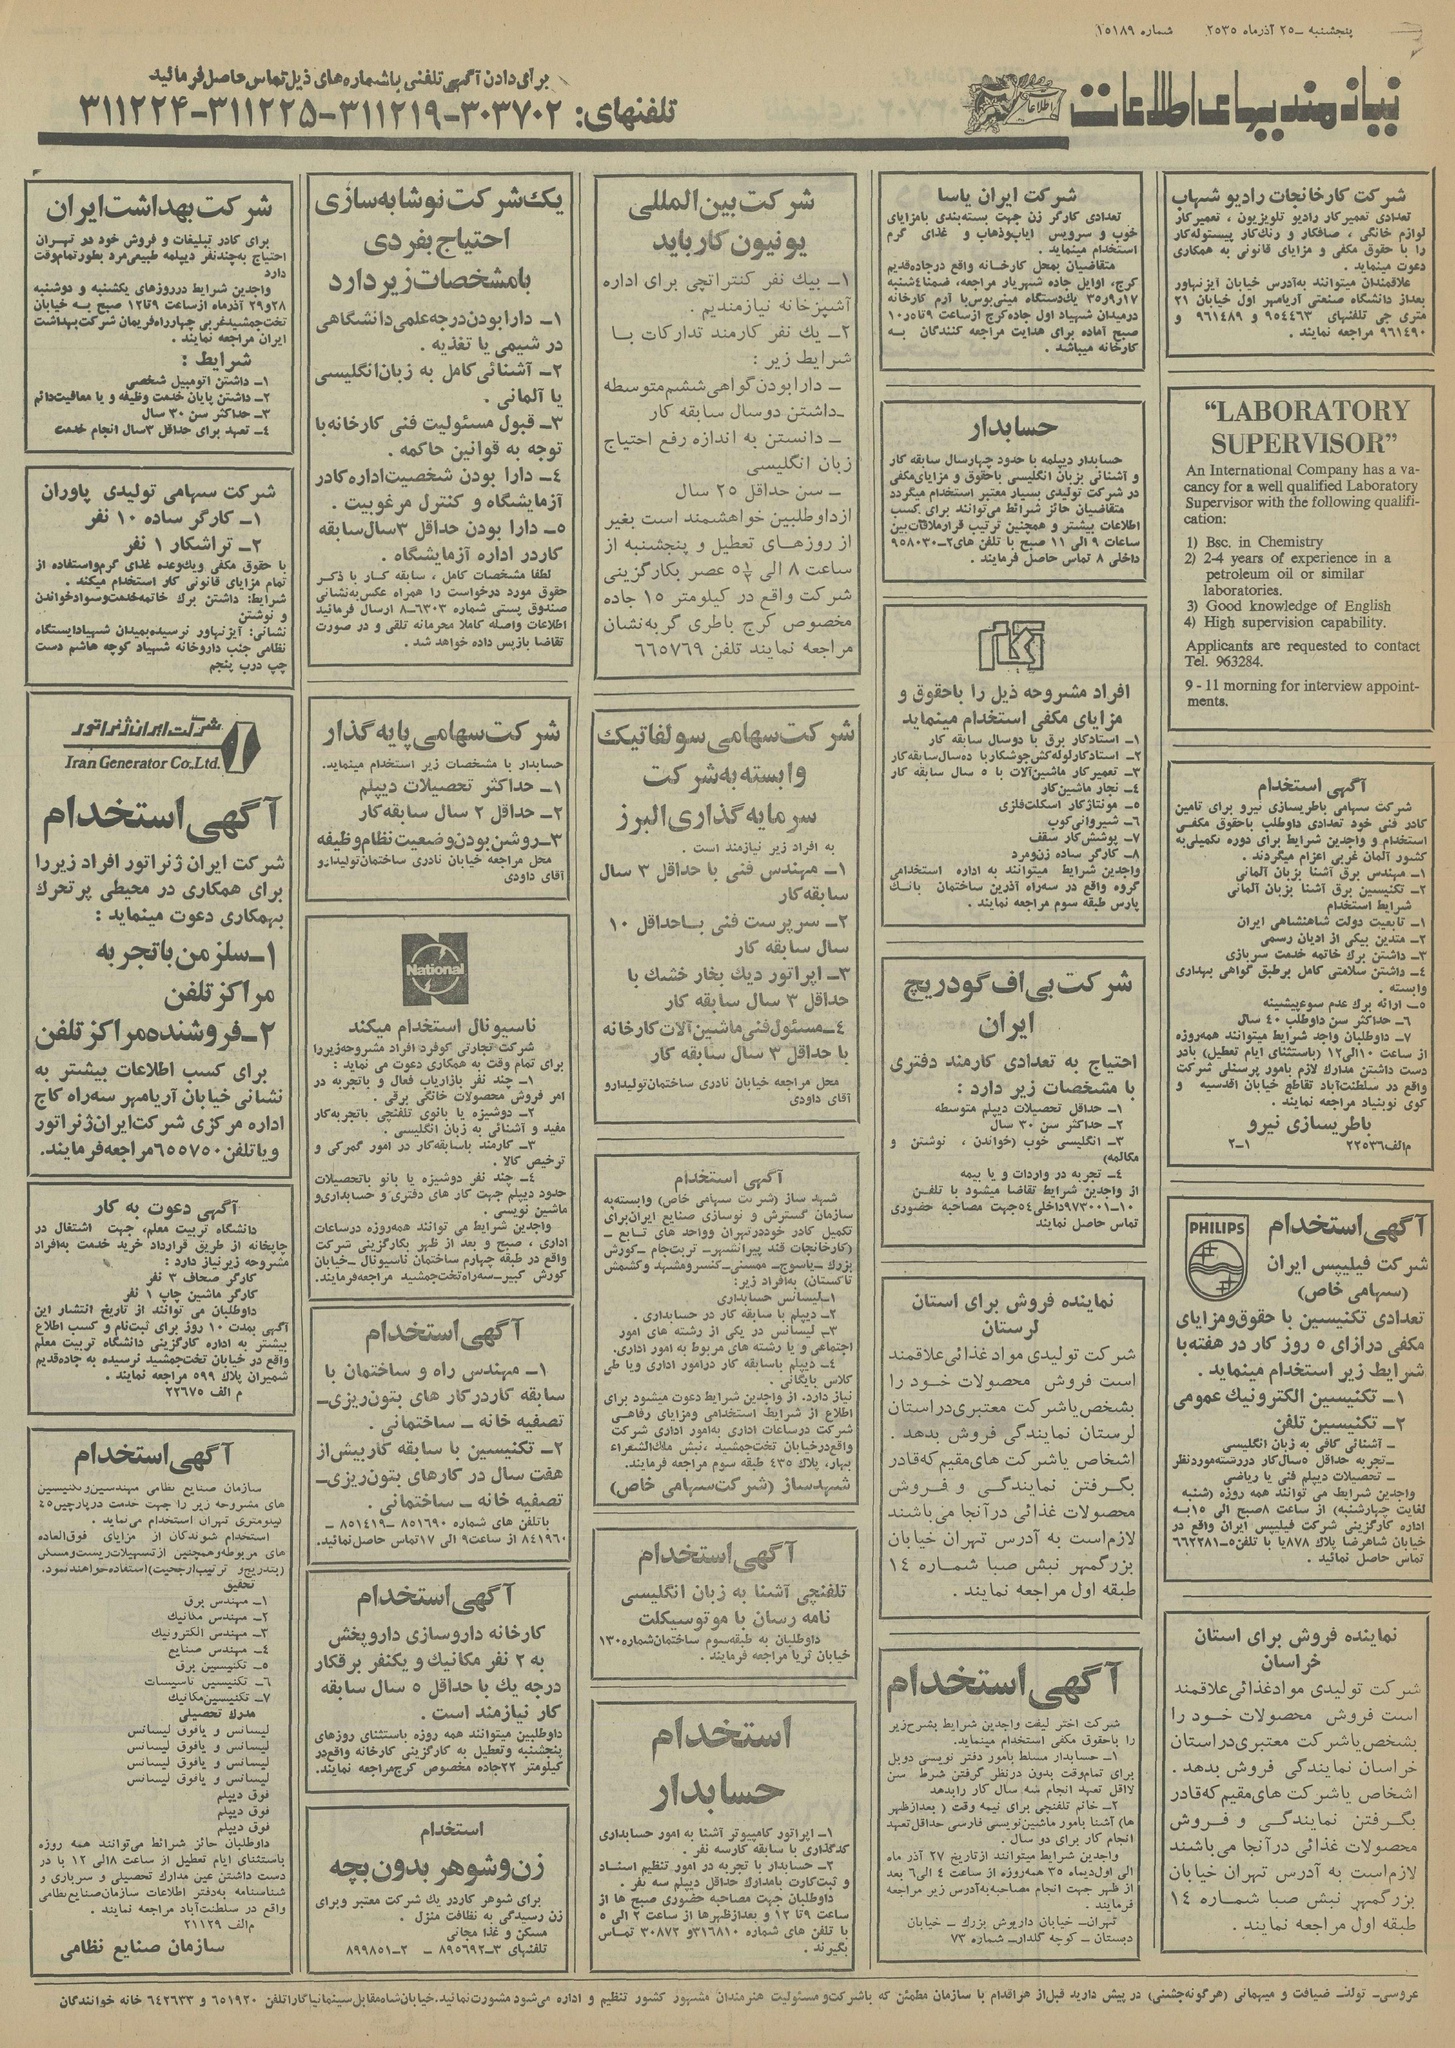 پنجشنبه ــ ۲۵ آذرماه ۲۵۳۵ شماره ۱۵۱۸۹
نیازمندیهای اطلاعات
برای دادن آگهی تلفنی باشماره‌های ذیل تماس حاصل فرمائید
تلفنهای: ۳۰۳۷۰۲-۳۱۱۲۱۹-۳۱۱۲۲۵-۳۱۱۲۲۴
شرکت کارخانجات رادیو شهاب
تعدادی تعمیرکار رادیو تلویزیون ، تعمیرکار
لوازم خانگی ، صافکار و رنگ‌کار پیستوله‌کار
را با حقوق مکفی و مزایای قانونی به همکاری
دعوت مینماید .
علاقمندان میتوانند به‌آدرس خیابان آیزنهاور
بعداز دانشگاه صنعتی آریامهر اول خیابان ۲۱
متری جی تلفنهای ۹۵۴۴۶۳ و ۹۶۱۴۸۹ و
۹۶۱۴۹۰ مراجعه نمایند .
“LABORATORY
SUPERVISOR”
An International Company has a va-
cancy for a well qualified Laboratory
Supervisor with the following qualifi-
cation:
1) Bsc. in Chemistry
2) 2-4 years of experience in a
petroleum oil or similar
laboratories.
3) Good knowledge of English
4) High supervision capability.
Applicants are requested to contact
Tel. 963284.
9 - 11 morning for interview appoint-
ments.
آگهی استخدام
شرکت سهامی باطریسازی نیرو برای تامین
کادر فنی خود تعدادی داوطلب باحقوق مکفی
استخدام و واجدین شرایط برای دوره تکمیلی‌به
کشور آلمان غربی اعزام میگردند .
۱ــ مهندس برق آشنا بزبان آلمانی
۲ــ تکنسین برق آشنا بزبان آلمانی
شرایط استخدام
۱ــ تابعیت دولت شاهنشاهی ایران
۲ــ متدین بیکی از ادیان رسمی
۳ــ داشتن برگ خاتمه خدمت سربازی
۴ــ داشتن سلامتی کامل برطبق گواهی بهداری
وابسته .
۵ــ ارائه برگ عدم سوءپیشینه
۶ــ حداکثر سن داوطلب ۴۰ سال
۷ــ داوطلبان واجد شرایط میتوانند همه‌روزه
از ساعت ۱۰الی۱۲ (باستثنای ایام تعطیل) بادر
دست داشتن مدارک لازم بامور پرسنلی شرکت
واقع در سلطنت‌آباد تقاطع خیابان اقدسیه و
کوی نوبنیاد مراجعه نمایند .
باطریسازی نیرو
م‌الف۲۲۵۳۶ ۲ــ۱
PHILIPS
آگهی استخدام
شرکت فیلیپس ایران
(سهامی خاص)
تعدادی تکنیسین با حقوق‌ومزایای
مکفی درازای ۵ روز کار در هفته‌با
شرایط زیر استخدام مینماید .
۱ــ تکنیسین الکترونیک عمومی
۲ــ تکنیسین تلفن
ــ آشنائی کافی به زبان انگلیسی
ــ تجربه حداقل ۵سال‌کار دررشته‌موردنظر
ــ تحصیلات دیپلم فنی یا ریاضی
واجدین شرایط می توانند همه روزه (شنبه
لغایت چهارشنبه) از ساعت ۸صبح الی ۱۵به
اداره کارگزینی شرکت فیلیپس ایران واقع در
خیابان شاهرضا پلاک ۸۷۸یا با تلفن۵ــ۶۶۲۲۸۱
تماس حاصل نمائید .
نماینده فروش برای استان
خراسان
شرکت تولیدی موادغذائی‌علاقمند
است فروش محصولات خود را
بشخص‌یاشرکت معتبری‌دراستان
خراسان نمایندگی فروش بدهد .
اشخاص یاشرکت های‌مقیم‌که‌قادر
بگرفتن نمایندگی و فروش
محصولات غذائی درآنجا می‌باشند
لازم‌است به آدرس تهران خیابان
بزرگمهر نبش صبا شماره ۱۴
طبقه اول مراجعه نمایند .
شرکت ایران یاسا
تعدادی کارگر زن جهت بسته‌بندی بامزایای
خوب و سرویس ایاب‌وذهاب و غذای گرم
استخدام مینماید .
متقاضیان بمحل کارخانه واقع درجاده‌قدیم
کرج، اوایل جاده شهریار مراجعه، ضمنا۴شنبه
۳۵ر۹ر۱۷ یک‌دستگاه مینی‌بوس‌با آرم کارخانه
درمیدان شهیاد اول جاده‌کرج ازساعت ۹تا۱۰در
صبح آماده برای هدایت مراجعه کنندگان به
کارخانه میباشد .
حسابدار
حسابدار دیپلمه با حدود چهارسال سابقه کار
و آشنائی بزبان انگلیسی باحقوق و مزایای‌مکفی
در شرکت تولیدی بسیار معتبر استخدام میگردد
متقاضیان حائز شرائط می‌توانند برای کسب
اطلاعات بیشتر و همچنین ترتیب قرارملاقات‌بین
ساعات ۹ الی ۱۱ صبح با تلفن های۲ــ۹۵۸۰۳۰
داخلی ۸ تماس حاصل فرمایند .
افراد مشروحه ذیل را باحقوق و
مزایای مکفی استخدام مینماید
۱ــ استادکار برق با دوسال سابقه کار
۲ــ استادکارلوله‌کش‌جوشکاربا ده‌سال‌سابقه‌کار
۳ــ تعمیرکار ماشین‌آلات با ۵ سال سابقه کار
۴ــ نجار ماشین‌کار
۵ــ مونتاژکار اسکلت‌فلزی
۶ــ شیروانی‌کوب
۷ــ پوشش‌کار سقف
۸ــ کارگر ساده زن‌ومرد
واجدین شرایط میتوانند به اداره استخدامی
گروه واقع در سه‌راه آذرین ساختمان بانک
پارس طبقه سوم مراجعه نمایند .
شرکت بی‌اف گودریچ
ایران
احتیاج به تعدادی کارمند دفتری
با مشخصات زیر دارد :
۱ــ حداقل تحصیلات دیپلم متوسطه
۲ــ حداکثر سن ۳۰ سال
۳ــ انگلیسی خوب (خواندن ، نوشتن و
مکالمه)
۴ــ تجربه در واردات و یا بیمه
از واجدین شرایط تقاضا میشود با تلفن
۱۰ــ۹۷۳۰۰۱داخلی ۵۴جهت مصاحبه حضوری
تماس حاصل نمایند
نماینده فروش برای استان
لرستان
شرکت تولیدی موادغذائی‌علاقمند
است فروش محصولات خود را
بشخص‌یاشرکت معتبری‌دراستان
لرستان نمایندگی فروش بدهد .
اشخاص یاشرکت های‌مقیم‌که‌قادر
بگرفتن نمایندگی و فروش
محصولات غذائی درآنجا می‌باشند
لازم‌است به آدرس تهران خیابان
بزرگمهر نبش صبا شماره ۱۴
طبقه اول مراجعه نمایند .
آگهی استخدام
شرکت اختر لیفت واجدین شرایط بشرح‌زیر
را باحقوق مکفی استخدام مینماید.
۱ــ حسابدار مسلط بامور دفتر نویسی دوبل
برای تمام‌وقت بدون درنظر گرفتن شرط سن
لااقل تعهد انجام سه سال کار رابدهد
۲ــ خانم تلفنچی برای نیمه وقت ( بعدازظهر
ها) آشنا بامور ماشین‌نویسی فارسی حداقل‌تعهد
انجام کار برای دو سال .
واجدین شرایط میتوانند ازتاریخ ۲۷ آذر ماه
الی اول‌دیماه ۳۵ همه‌روزه از ساعت ۴ الی۶ بعد
از ظهر جهت انجام مصاحبه‌به‌آدرس زیر مراجعه
فرمایند .
تهران- خیابان داریوش بزرگ - خیابان
دبستان - کوچه گلدار- شماره ۷۳
شرکت بین‌المللی
یونیون کارباید
۱ــ بیک نفر کنتراتچی برای اداره
آشپزخانه نیازمندیم .
۲ــ یک نفر کارمند تدارکات با
شرایط زیر :
ــ دارابودن‌گواهی‌ششم‌متوسطه
ــداشتن دوسال سابقه کار
ــ دانستن به اندازه رفع احتیاج
زبان انگلیسی
ــ سن حداقل ۲۵ سال
ازداوطلبین خواهشمند است بغیر
از روزهای تعطیل و پنجشنبه از
ساعت ۸ الی ۵½ عصر بکارگزینی
شرکت واقع در کیلومتر ۱۵ جاده
مخصوص کرج باطری گربه‌نشان
مراجعه نمایند تلفن ۶۶۵۷۶۹
شرکت‌سهامی سولفاتیک
وابسته به‌شرکت
سرمایه‌گذاری‌البرز
به افراد زیر نیازمند است .
۱ــ مهندس فنی با حداقل ۳ سال
سابقه‌کار
۲ــ سرپرست فنی باحداقل ۱۰
سال سابقه کار
۳ــ اپراتور دیک بخار خشک با
حداقل ۳ سال سابقه کار
۴ــمسئول‌فنی‌ماشین‌آلات‌کارخانه
با حداقل ۳ سال سابقه کار
محل مراجعه خیابان نادری ساختمان‌تولیدارو
آقای داودی
آگهی استخدام
شهد ساز (شرکت سهامی خاص) وابسته‌به
سازمان گسترش و نوسازی صنایع ایران‌برای
تکمیل کادر خوددرتهران وواحد های تابع ــ
(کارخانجات قند پیرانشهرــ تربت‌جام ــکورش
بزرگ ــیاسوج‌ــ ممسنی‌ــ کنسرومشهد وکشمش
تاکستان) به‌افراد زیر:
۱ــلیسانس حسابداری
۲ــ دیپلم با سابقه کار در حسابداری .
۳ــ لیسانس در یکی از رشته های امور
اجتماعی و یا رشته های مربوط به امور اداری.
۴ــ دیپلم باسابقه کار درامور اداری ویا طی
کلاس بایگانی .
نیاز دارد. از واجدین شرایط دعوت میشود برای
اطلاع از شرایط استخدامی ومزایای رفاهی
شرکت درساعات اداری به‌امور اداری شرکت
واقع‌درخیابان تخت‌جمشید ،نبش ملک‌الشعراء
بهار، پلاک ۴۳۵ طبقه سوم مراجعه فرمایند.
شهدساز (شرکت‌سهامی خاص)
آگهی استخدام
تلفنچی آشنا به زبان انگلیسی
نامه رسان با موتوسیکلت
داوطلبان به طبقه‌سوم ساختمان‌شماره ۱۳۰
خیابان ثریا مراجعه فرمایند .
استخدام
حسابدار
۱ــ اپراتور کامپیوتر آشنا به امور حسابداری
کدگذاری با سابقه کارسه نفر .
۲ــ حسابدار با تجربه در امور تنظیم اسناد
و ثبت‌کارت بامدارک حداقل دیپلم سه نفر .
داوطلبان جهت مصاحبه حضوری صبح ها از
ساعت ۹تا ۱۲ و بعدازظهرها از ساعت ۲ الی ۵
با تلفن های شماره ۳۱۶۸۱۰و ۳۰۸۷۲ تماس
بگیرند .
یک‌شرکت‌نوشابه‌سازی
احتیاج‌بفردی
بامشخصات‌زیردارد
۱ــ دارابودن‌درجه‌علمی‌دانشگاهی
در شیمی یا تغذیه .
۲ــ آشنائی کامل به زبان‌انگلیسی
یا آلمانی .
۳ــ قبول مسئولیت فنی کارخانه‌با
توجه به قوانین حاکمه .
۴ــ دارا بودن شخصیت‌اداره‌کادر
آزمایشگاه و کنترل مرغوبیت .
۵ــ دارا بودن حداقل ۳سال‌سابقه
کاردر اداره آزمایشگاه .
لطفا مشخصات کامل ، سابقه کار با ذکر
حقوق مورد درخواست را همراه عکس‌به‌نشانی
صندوق پستی شماره ۶۳۰۳ــ۸ ارسال فرمائید
اطلاعات واصله کاملا محرمانه تلقی و در صورت
تقاضا بازپس داده خواهد شد .
شرکت‌سهامی پایه‌گذار
حسابدار با مشخصات زیر استخدام مینماید.
۱ــ حداکثر تحصیلات دیپلم
۲ــ حداقل ۲ سال سابقه‌کار
۳ــروشن‌بودن‌وضعیت نظام‌وظیفه
محل مراجعه خیابان نادری ساختمان‌تولیدارو
آقای داودی
National
ناسیونال استخدام میکند
شرکت تجارتی کوفرد افراد مشروحه‌زیررا
برای تمام وقت به همکاری دعوت می نماید :
۱ــ چند نفر بازاریاب فعال و باتجربه در
امر فروش محصولات خانگی برقی .
۲ــ دوشیزه یا بانوی تلفنچی باتجربه‌کار
مفید و آشنائی به زبان انگلیسی .
۳ــ کارمند باسابقه‌کار در امور گمرکی و
ترخیص کالا .
۴ــ چند نفر دوشیزه یا بانو باتحصیلات
حدود دیپلم جهت کار های دفتری و حسابداری‌و
ماشین نویسی .
واجدین شرایط می توانند همه‌روزه درساعات
اداری ، صبح و بعد از ظهر بکارگزینی شرکت
واقع در طبقه چهارم ساختمان ناسیونال ــخیابان
کورش کبیر ــسه‌راه‌تخت‌جمشید مراجعه‌فرمایند.
آگهی‌استخدام
۱ــ مهندس راه و ساختمان با
سابقه کاردرکار های بتون‌ریزی‌ــ
تصفیه خانه ــ ساختمانی .
۲ــ تکنیسین با سابقه کاربیش‌از
هفت سال در کارهای بتون‌ریزی‌ــ
تصفیه خانه ــ ساختمانی .
باتلفن های شماره ۸۵۱۶۹۰ ــ۸۵۱۴۱۹ ــ
۸۴۱۹۶۰ ازساعت۹ الی ۱۷تماس حاصل‌نمائید.
آگهی استخدام
کارخانه داروسازی داروپخش
به ۲ نفر مکانیک و یکنفر برقکار
درجه یک با حداقل ۵ سال سابقه
کار نیازمند است .
داوطلبین میتوانند همه روزه باستثنای روزهای
پنجشنبه وتعطیل به کارگزینی کارخانه واقع‌در
کیلومتر ۲۲جاده مخصوص کرج‌مراجعه نمایند.
استخدام
زن‌وشوهر بدون‌بچه
برای شوهر کاردر یک شرکت معتبر وبرای
زن رسیدگی به نظافت منزل .
مسکن و غذا مجانی
تلفنهای ۳ــ۸۹۵۶۹۲ ــ ۲ــ۸۹۹۸۵۱
شرکت بهداشت‌ایران
برای کادر تبلیغات و فروش خود در تهران
احتیاج به‌چندنفر دیپلمه طبیعی‌مرد بطورتمام‌وقت
دارد
واجدین شرایط درروزهای یکشنبه و دوشنبه
۲۸و۲۹ آذرماه ازساعت ۹تا۱۲ صبح به خیابان
تخت‌جمشیدغربی چهارراه‌فریمان شرکت‌بهداشت
ایران مراجعه نمایند .
شرایط :
۱ــ داشتن اتومبیل شخصی
۲ــ داشتن پایان خدمت وظیفه و یا معافیت‌دائم
۳ــ حداکثر سن ۳۰ سال
۴ــ تعهد برای حداقل ۳سال انجام خدمت
شرکت سهامی تولیدی پاوران
۱ــ کارگر ساده ۱۰ نفر
۲ــ تراشکار ۱ نفر
با حقوق مکفی ویک‌وعده غذای گرم‌واستفاده از
تمام مزایای قانونی کار استخدام میکند .
شرایط: داشتن برگ خاتمه‌خدمت‌وسوادخواندن
و نوشتن
نشانی: آیزنهاور نرسیده‌بمیدان شهیادایستگاه
نظامی جنب داروخانه شهیاد کوچه هاشم دست
چپ درب پنجم
شرکت ایران ژنراتور
Iran Generator Co.,Ltd.
آگهی استخدام
شرکت ایران ژنراتور افراد زیررا
برای همکاری در محیطی پرتحرک
بهمکاری دعوت مینماید :
۱ــسلزمن باتجربه
مراکزتلفن
۲ــفروشنده‌مراکزتلفن
برای کسب اطلاعات بیشتر به
نشانی خیابان آریامهر سه‌راه کاج
اداره مرکزی شرکت‌ایران‌ژنراتور
ویاتلفن۶۵۵۷۵۰مراجعه‌فرمایند.
آگهی دعوت به کار
دانشگاه تربیت معلم، جهت اشتغال در
چاپخانه از طریق قرارداد خرید خدمت به‌افراد
مشروحه زیرنیاز دارد :
کارگر صحاف ۳ نفر
کارگر ماشین چاپ ۱ نفر
داوطلبان می توانند از تاریخ انتشار این
آگهی بمدت ۱۰ روز برای ثبت‌نام و کسب اطلاع
بیشتر به اداره کارگزینی دانشگاه تربیت معلم
واقع در خیابان تخت‌جمشید نرسیده به جاده‌قدیم
شمیران پلاک ۵۹۹ مراجعه نمایند .
م الف ۲۲۶۷۵
آگهی‌استخدام
سازمان صنایع نظامی مهندسین‌وتکنیسین
های مشروحه زیر را جهت خدمت درپارچین۴۵
کیلومتری تهران استخدام می‌نماید .
استخدام شوندگان از مزایای فوق‌العاده
های مربوطه‌وهمچنین ازتسهیلات‌زیست‌ومسکن
(بتدریج‌و ترتیب‌ارجحیت)استفاده‌خواهندنمود.
۱ــ مهندس برق
۲ــ مهندس مکانیک
۳ــ مهندس الکترونیک
۴ــ مهندس صنایع
۵ــ تکنیسین برق
۶ــ تکنیسین تاسیسات
۷ــ تکنیسین‌مکانیک
مدرک تحصیلی
لیسانس و یافوق لیسانس
لیسانس و یافوق لیسانس
لیسانس و یافوق لیسانس
لیسانس و یافوق لیسانس
فوق دیپلم
فوق دیپلم
فوق دیپلم
داوطلبان حائز شرائط می‌توانند همه روزه
باستثنای ایام تعطیل از ساعت ۸الی ۱۲ با در
دست داشتن عین مدارک تحصیلی و سربازی و
شناسنامه به‌دفتر اطلاعات سازمان‌صنایع‌نظامی
واقع در سلطنت‌آباد مراجعه نمایند .
م‌الف ۲۱۱۲۹
سازمان صنایع نظامی
عروسی‌ــ تولد‌ــ ضیافت و میهمانی (هرگونه‌جشنی) در پیش دارید قبل‌از هراقدام با سازمان مطمئن که باشرکت‌ومسئولیت هنرمندان مشهور کشور تنظیم و اداره می‌شود مشورت‌نمائید.خیابان‌شاه‌مقابل‌سینمانیاگاراتلفن ۶۵۱۹۲۰ و ۶۴۲۶۳۳ خانه خوانندگان